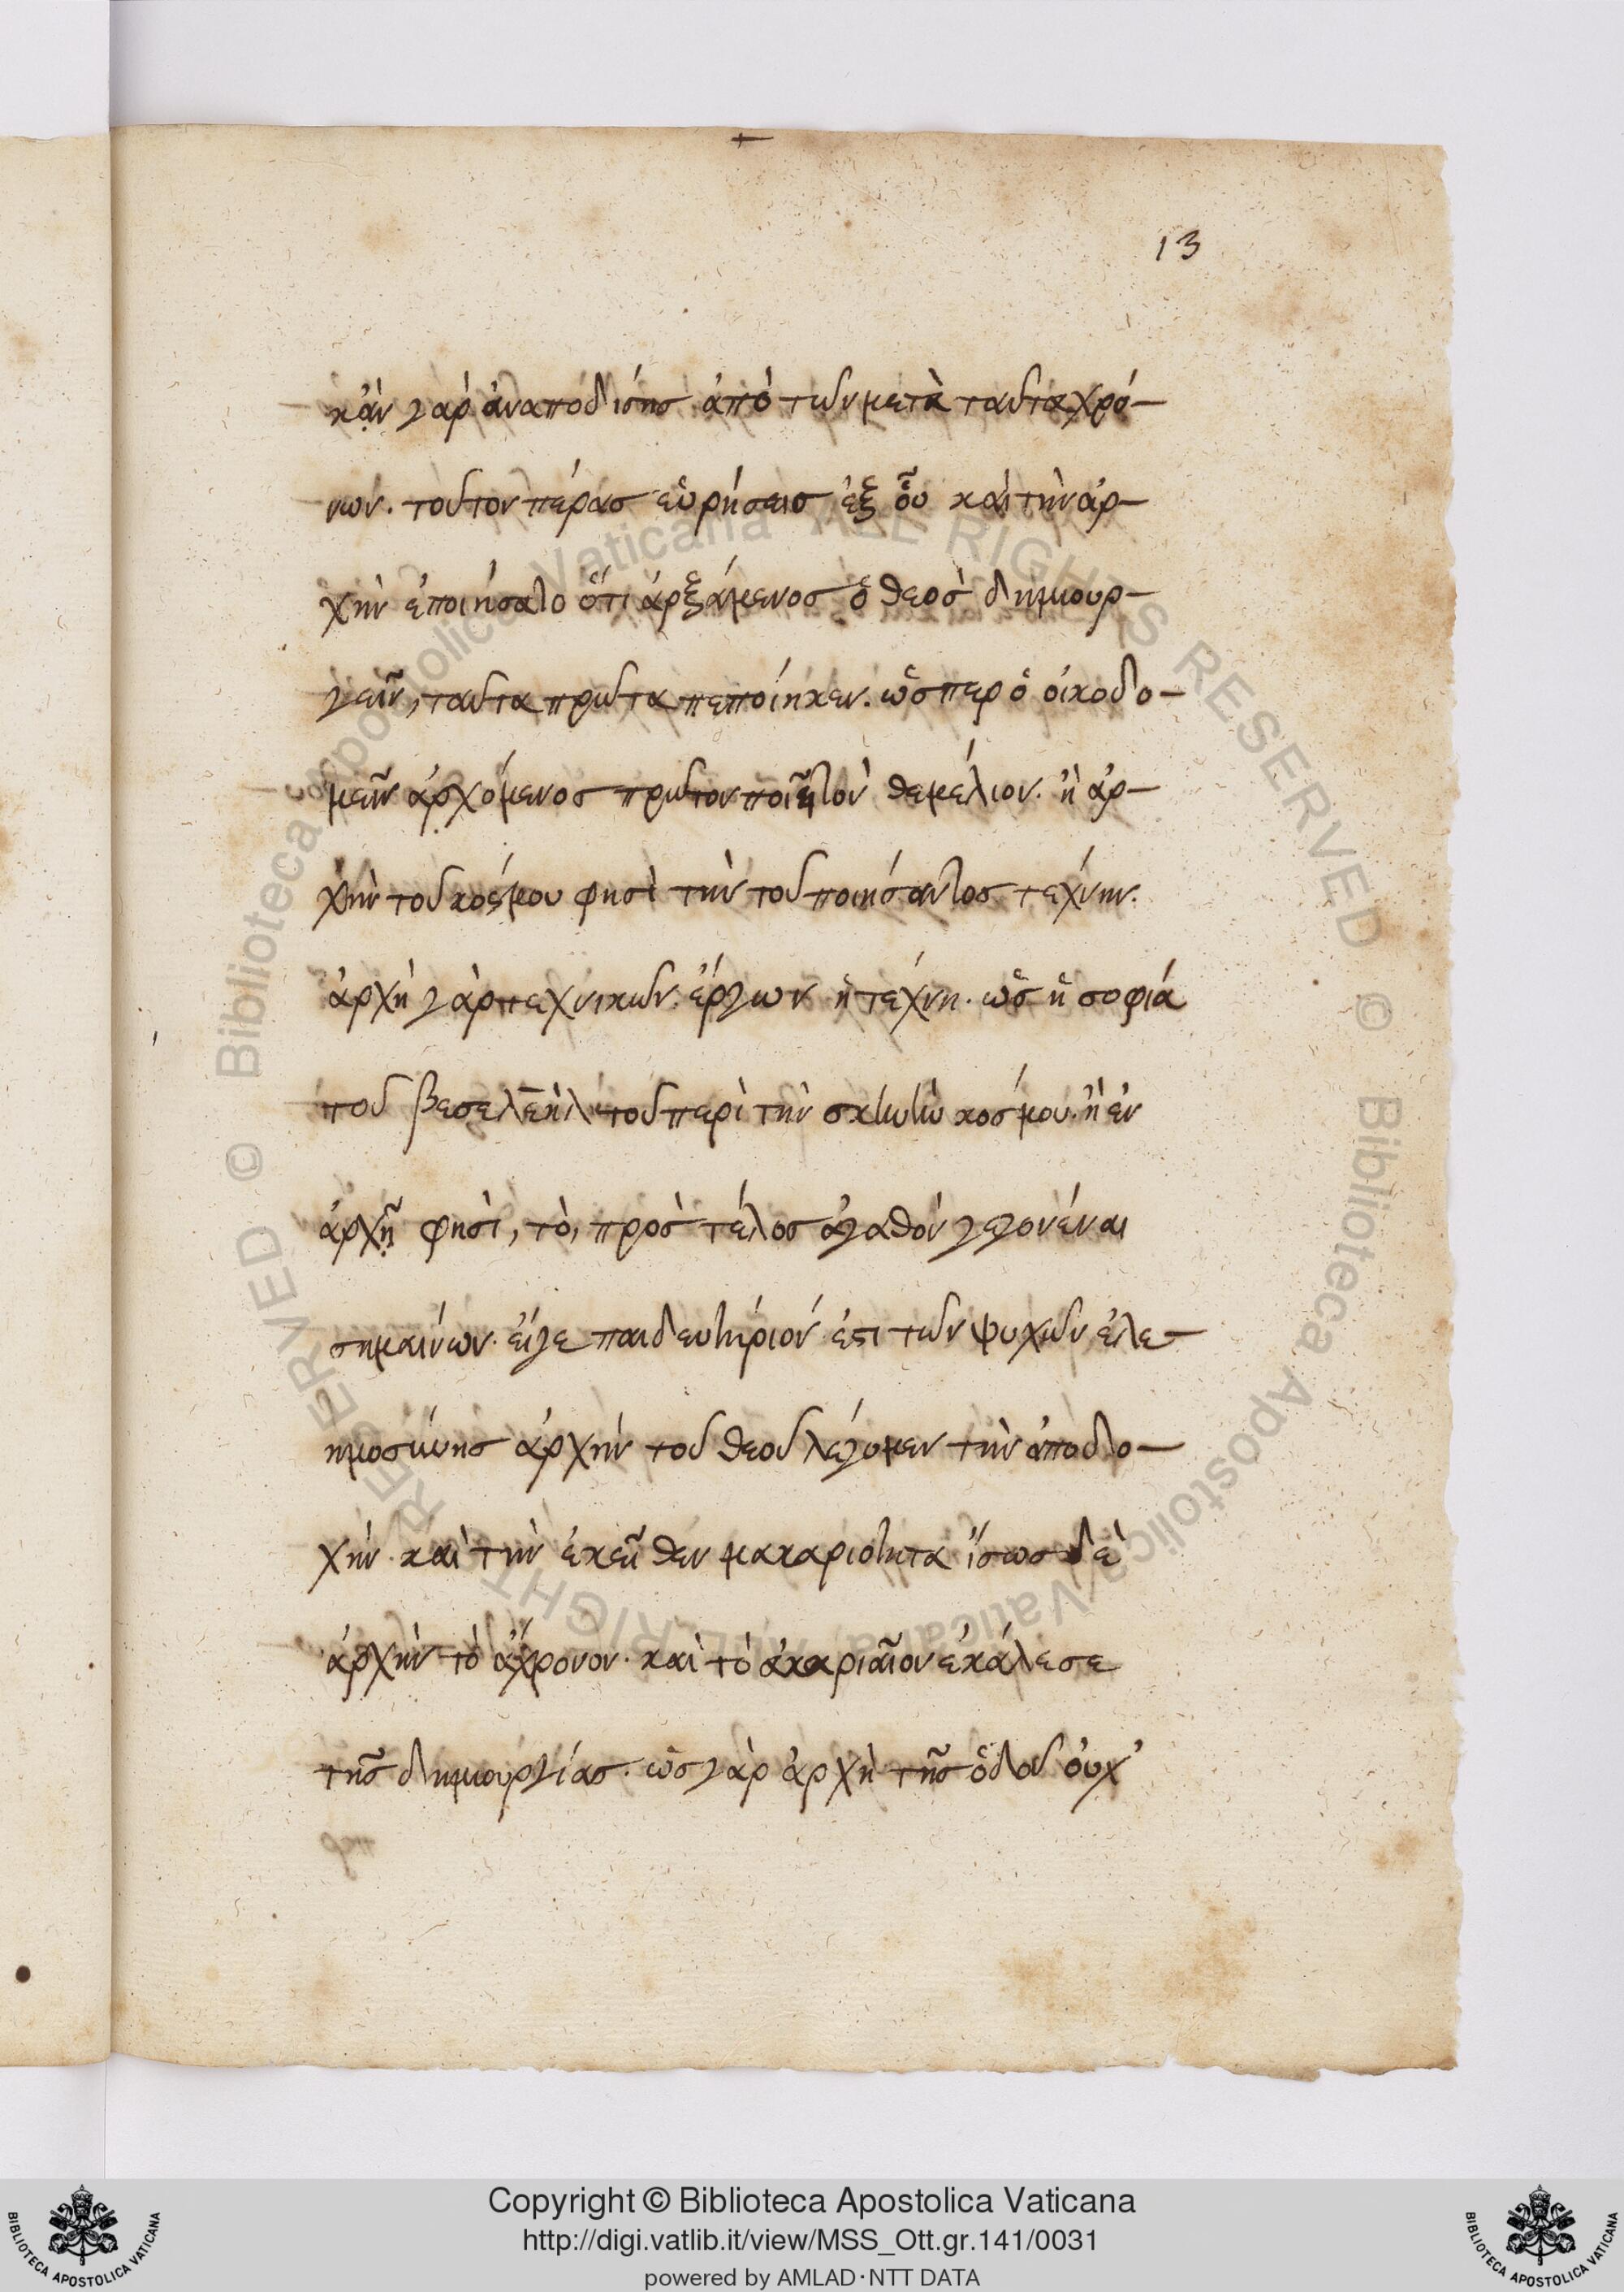 13
κᾂν γὰρ ἀναποδίσῃς ἀπὸ τῶν μετὰ ταῦτα χρό-
νων. τοῦτον πέρας εὑρήσεις ἐξ οὗ καὶ τὴν ἀρ-
χὴν ἐποιήσατο ὅτι ἀρξάμενος ὁ θεὸς δημιουρ-
γεῖν, ταῦτα πρῶτα πεποίηκεν. ὥσπερ ὁ οἰκοδο-
μεῖν ἀρχόμενος πρῶτον ποιεῖ τὸν θεμέλιον. ἢ ἀρ-
χὴν τοῦ κόσμου φησὶ τὴν τοῦ ποιήσαντος τέχνην.
ἀρχὴ γὰρ τεχνικῶν ἔργων ἡ τέχνη. ὡς ἡ σοφία
τοῦ βεσελεὴλ τοῦ περὶ τὴν σκηνὴν κόσμου. ἢ ἐν
ἀρχῇ φησὶ, τὸ, πρὸς τέλος ἀγαθὸν γεγονέναι
σημαίνων. εἴγε παιδευτήριόν ἐστι τῶν ψυχῶν ἐλε-
ημοσύνης ἀρχὴν τοῦ θεοῦ λέγομεν τὴν ἀποδο-
χὴν καὶ τὴν ἐκεῖθεν μακαριότητα ἴσως δὲ
ἀρχὴν τὸ ἄχρονον. καὶ τὸ ἀκαριαῖον ἐκάλεσε
τῆς δημιουργίας. ὡς γὰρ ἀρχὴ τῆς ὁδοῦ οὐχ'
Copyright © Biblioteca Apostolica Vaticana
http://digi.vatlib.it/view/MSS_Ott.gr.141/0031
powered by AMLAD·NTT DATA